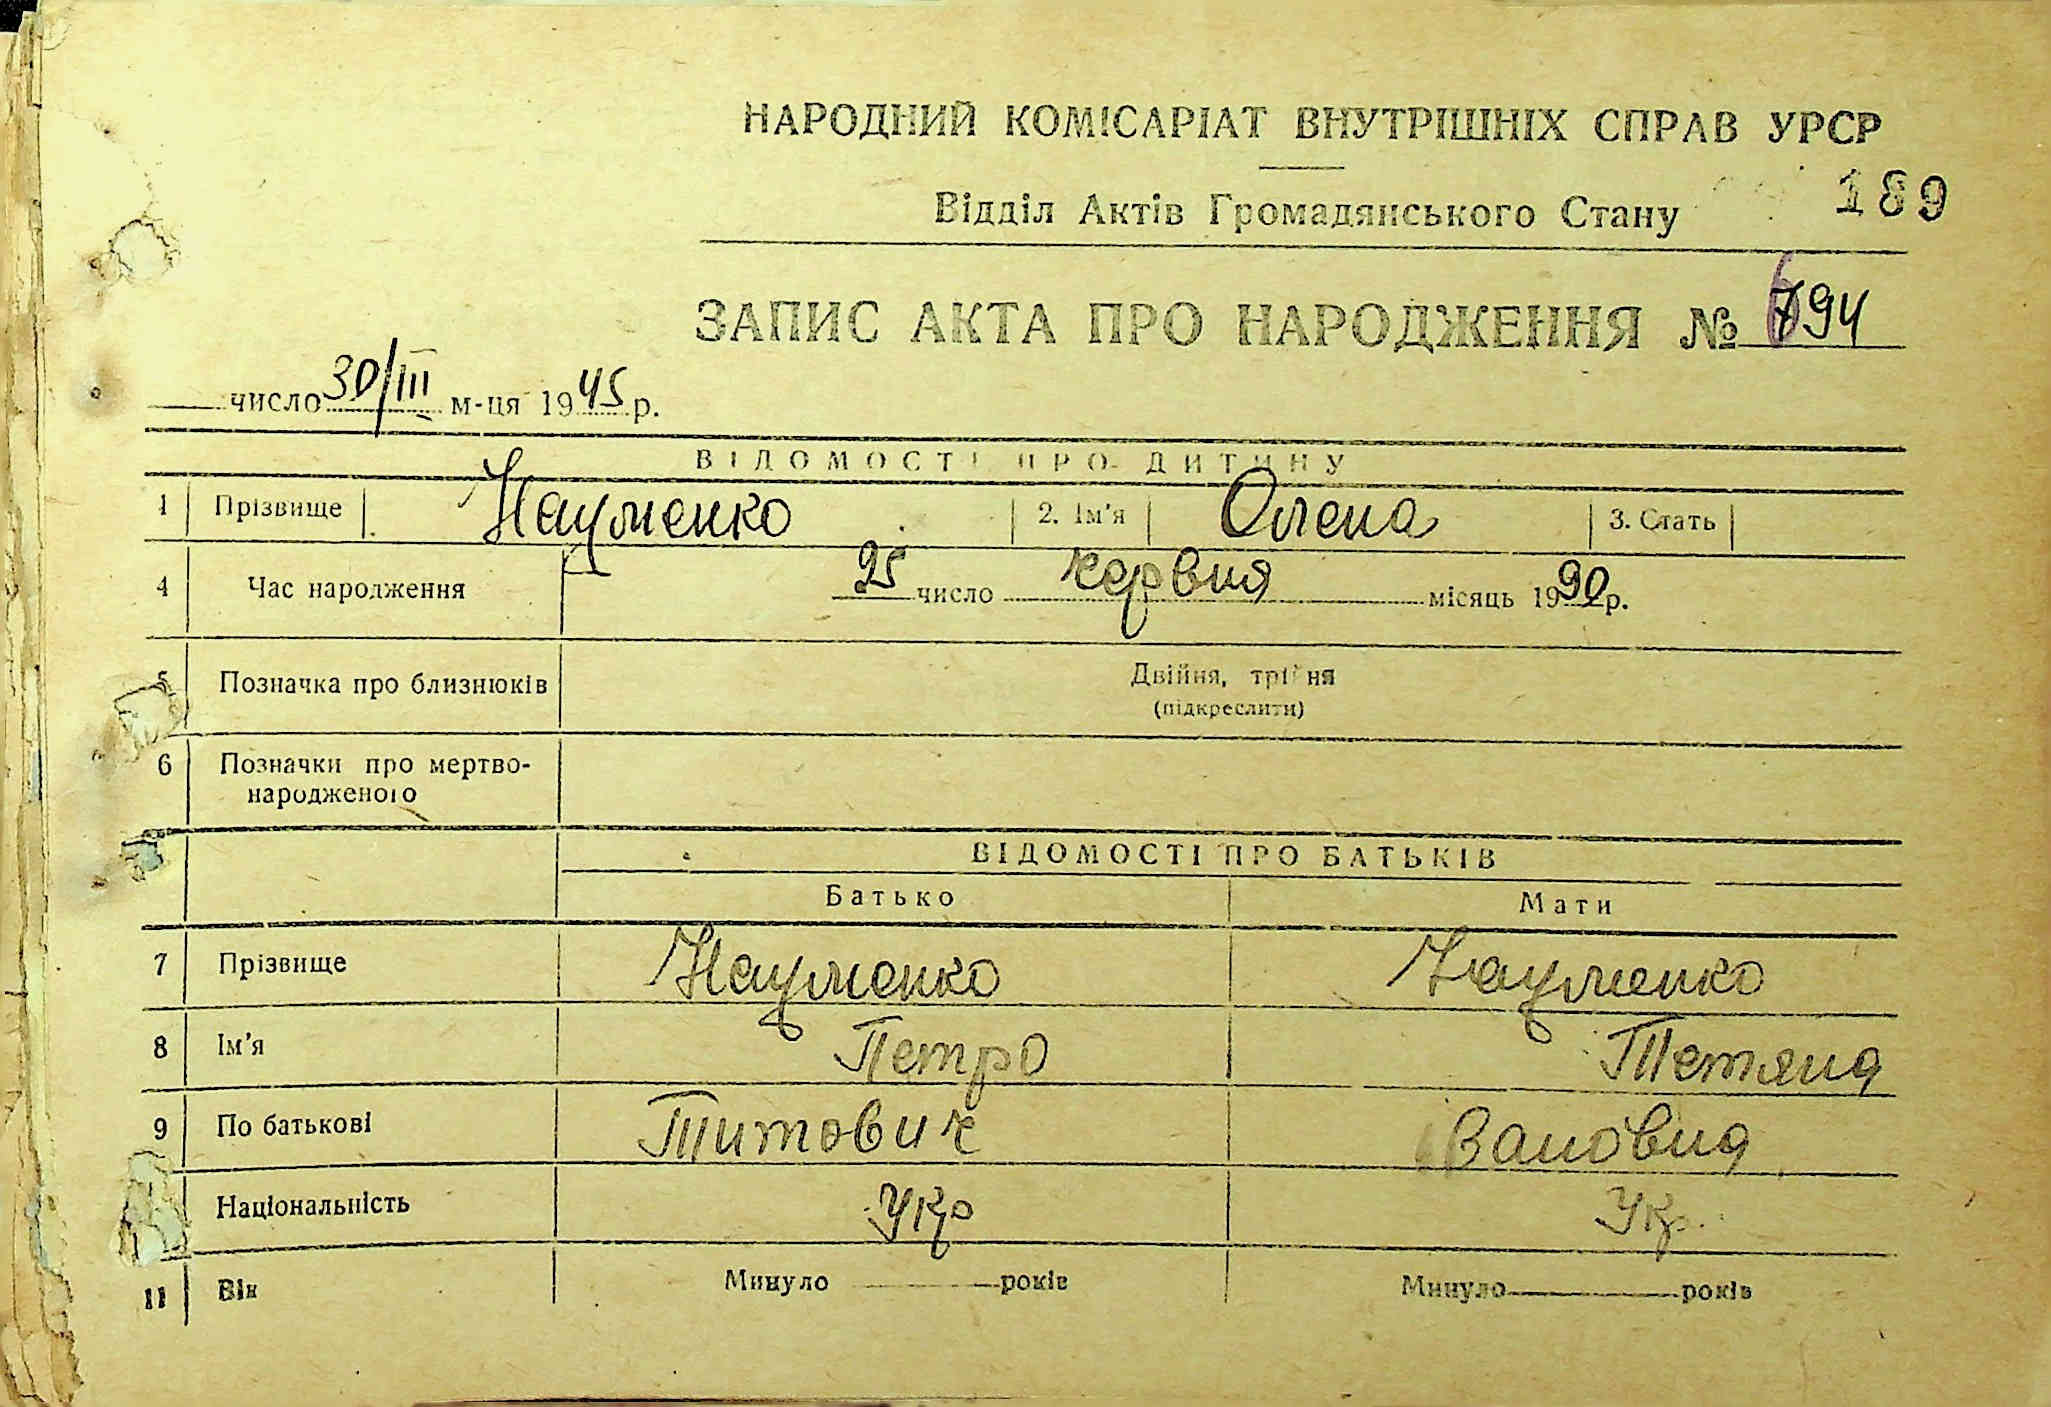 НАРОДНИЙ КОМІСАРІАТ ВНУТРІШНІХ СПРАВ УРСР
Відділ Актів Громадянського Стану 189
ЗАПИС АКТА ПРО НАРОДЖЕННЯ № 694
число 30/III м-ця 1945 р.
ВІДОМОСТІ ПРО ДИТИНУ
1 Прізвище Науменко 2. Ім'я Олена 3. Стать
4 Час народження 25 число червня місяць 1990 р.
5 Позначка про близнюків Двійня, трійня
(підкреслити)
6 Позначки про мертво-
народженого
ВІДОМОСТІ ПРО БАТЬКІВ
Батько Мати
7 Прізвище Науменко Науменко
8 Ім'я Петро Тетяна
9 По батькові Титович Івановна
Національність Укр Укр.
11 Вік Минуло років Минуло років